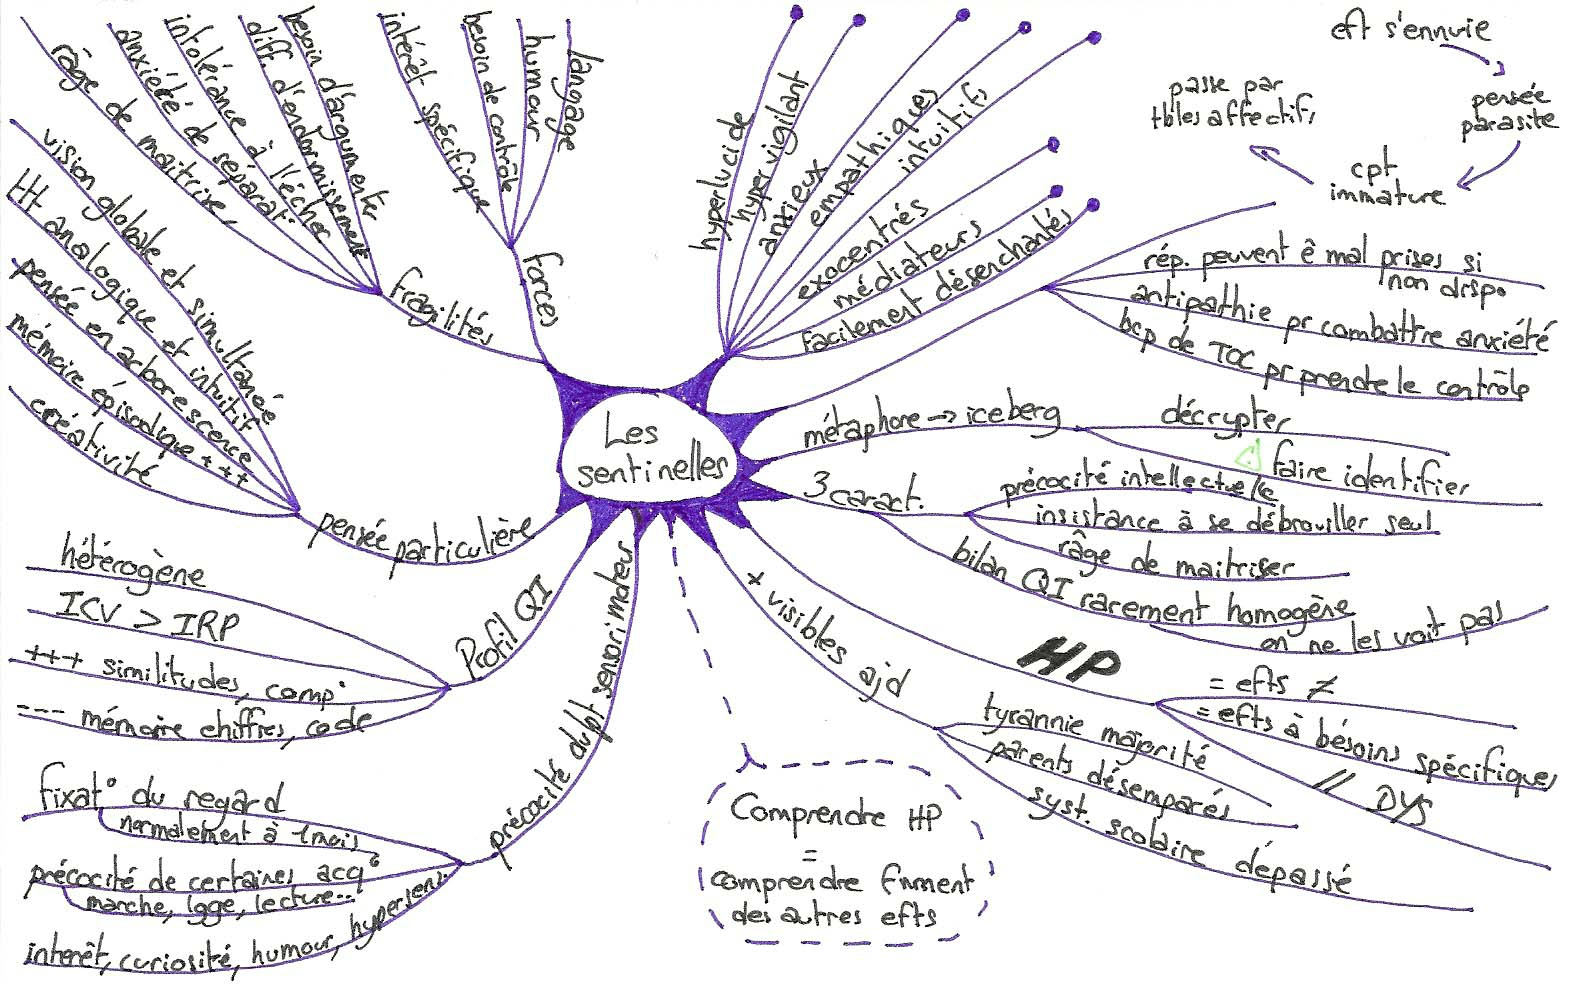 Les
sentinelles
hyperlucide
hypervigilant
anxieux
empathiques
intuitifs
exocentrés
médiateurs
facilement désenchantés
eft s'ennuie
pensée
parasite
cpt
immature
passe par
tbles affectifs
rép. peuvent ê mal prises si
non dispo
antipathie pr combattre anxiété
bcp de TOC pr prendre le contrôle
métaphore → iceberg
décrypter
faire identifier
3 caract.
précocité intellectuelle
insistance à se débrouiller seul
râge de maitriser
bilan QI rarement homogène
on ne les voit pas
HP
= efts ≠
= efts à bésoins spécifiques
// DYS
+ visibles ajd
tyrannie majorité
parents désemparés
syst. scolaire dépassé
Comprendre HP
=
comprendre fnment
des autres efts
précocité dvlpt sensori moteur
fixat° du regard
normalement à 1 mois
précocité de certaines acq°
marche, lgge, lecture...
interêt, curiosité, humour, hypersens.
Profil QI
hétérogène
ICV > IRP
+++ similitudes, comp°
--- mémoire chiffres, code
pensée particulière
vision globale et simultanée
tt analogique et intuitif
pensée en arborescence
mémoire épisodique +++
créativité
fragilités
râge de maitrise
anxiété de séparat°
intolérance à l'échec
diff. d'endormissement
besoin d'argumenter
forces
intérêt spécifique
besoin de contrôle
humour
langage